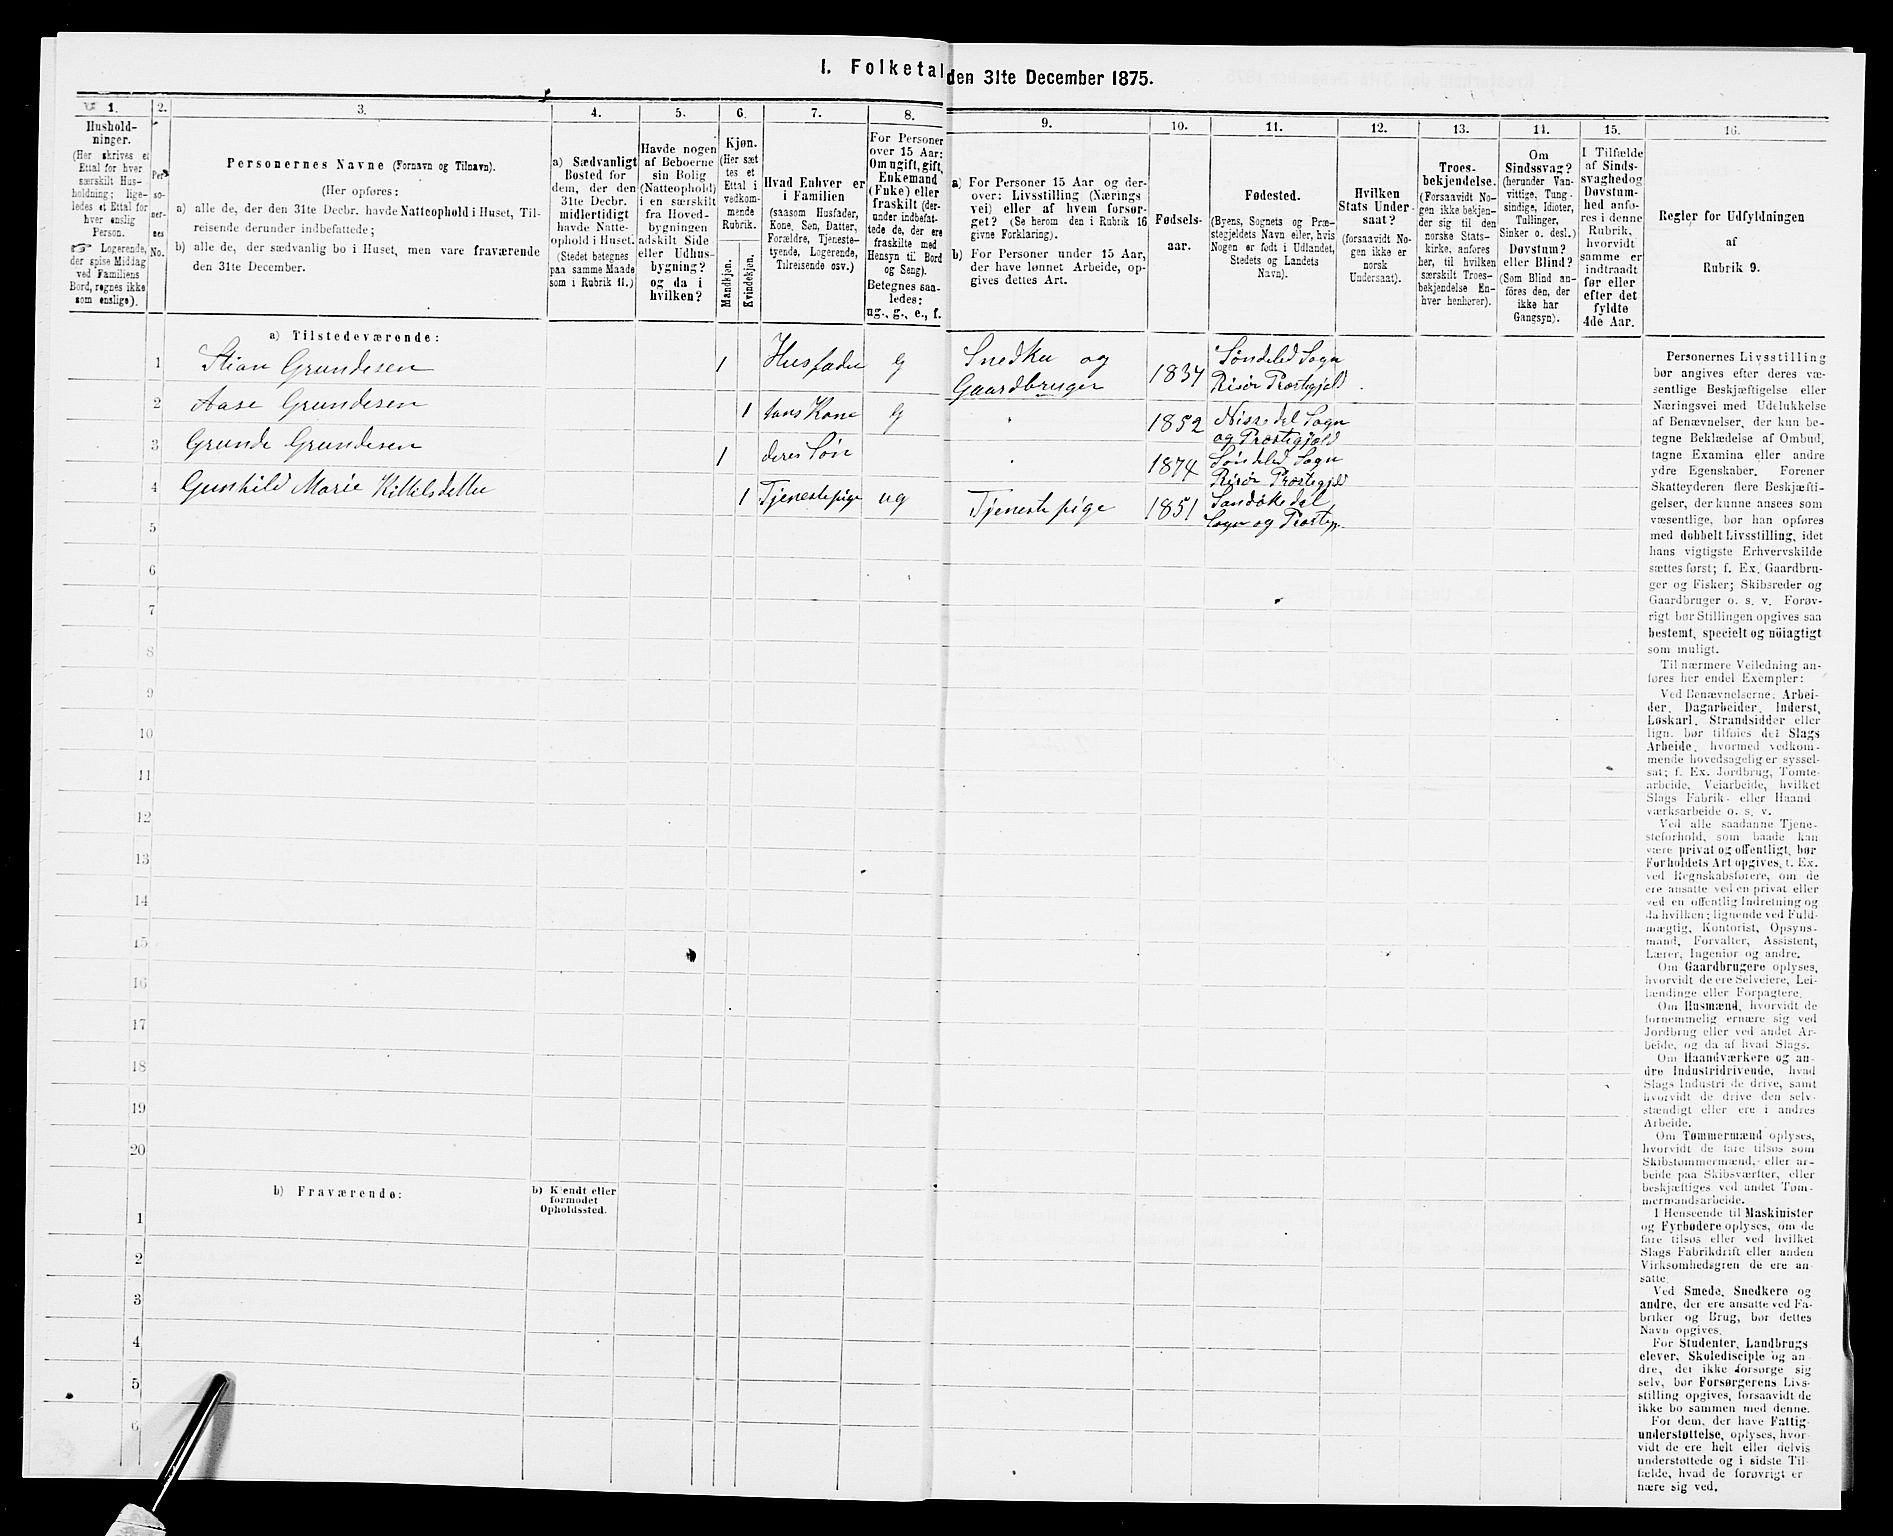 I. Folketal den 31te December 1875.
1.
Hushold-
ninger.
(Her skrives et
Ettal for hver
særskilt Hus-
holdning; lige-
ledes et Ettal for
hver enslig
Person.
☞ Logerende,
der spise Middag
ved Familiens
Bord, regnes ikke
som enslige).
2.
Per-
so-
ner-
nes
No.
3.
Personernes Navne (Fornavn og Tilnavn).
(Her opføres:
a) alle de, der den 31te Decbr. havde Natteophold i Huset, Til-
reisende derunder indbefattede;
b) alle de, der sædvanlig bo i Huset, men vare fraværende
den 31te December.
4.
a) Sædvanligt
Bosted for
dem, der den
31te Decbr.
midlertidigt
havde Natte-
ophold i Huset.
(Stedet betegnes
paa samme Maade
som i Rubrik 11.)
5.
Havde nogen
af Beboerne
sin Bolig
(Natteophold)
i en særskilt
fra Hoved-
bygningen
adskilt Side-
eller Udhus-
bygning?
og da i
hvilken?
6.
Kjøn.
(Her sæt-
tes et
Ettal i
vedkom-
mende
Rubrik.
Mandkjøn.
Kvindekjøn.
7.
Hvad Enhver er
i Familien
(saasom Husfader,
Kone, Søn, Datter,
Forældre, Tjeneste-
tyende, Logerende,
Tilreisende osv.)
8.
For Personer
over 15 Aar:
Om ugift, gift,
Enkemand
(Enke) eller
fraskilt (der-
under indbefat-
tede de, der ere
fraskilte med
Hensyn til Bord
og Seng).
Betegnes saa-
ledes:
ug., g., e., f.
9.
a) For Personer 15 Aar og der-
over: Livsstilling (Nærings-
vei) eller af hvem forsør-
get? (Se herom den i Rubrik 16
givne Forklaring).
b) For Personer under 15 Aar,
der have lønnet Arbeide, op-
gives dettes Art.
10.
Fødsels-
aar.
11.
Fødested.
(Byens, Sognets og Præ-
stegjeldets Navn eller, hvis
Nogen er født i Udlandet,
Stedets og Landets
Navn).
12.
Hvilken
Stats Under-
saat?
(forsaavidt No-
gen ikke er
norsk
Undersaat).
13.
Troes-
bekjendelse.
(Forsaavidt No-
gen ikke bekjen-
der sig til den
norske Stats-
kirke, anføres
her, til hvilken
særskilt Troes-
bekjendelse En-
hver henhører).
14.
Om
Sindssvag?
(herunder Van-
vittige, Tung-
sindige, Idioter,
Tullinger,
Sinker o. desl.)
Døvstum?
eller Blind?
(Som Blind an-
føres den, der
ikke har
Gangsyn).
15.
I Tilfælde
af Sinds-
svaghed og
Døvstum-
hed anfø-
res i denne
Rubrik,
hvorvidt
samme er
indtraadt
før eller
efter det
fyldte
4de Aar.
16.
Regler for Udfyldningen
af
Rubrik 9.
a) Tilstedeværende:
1 Stian Grundesen 1 Husfader g Snedker og
Gaardbruger 1834 Søndeled Sogn
Risør Præstegjeld
2 Aase Grundesen 1 hans Kone g " 1852 Nissedal Sogn
og Præstegjæld
3 Grunde Grundesen 1 deres Søn " 1874 Søndeled Sogn
Risør Præstegjeld
4 Gunhild Marie Kittilsdatter 1 Tjenestepige ug Tjenestepige 1851 Sandøkedal
Sogn og Præstegj.
5
6
7
8
9
10
11
12
13
14
15
16
17
18
19
20
b) Fraværende:
b) Kjendt eller
formodet
Opholdssted.
1
2
3
4
5
6
Personernes Livsstilling
bør angives efter deres væ-
sentlige Beskjæftigelse eller
Næringsvei med Udelukkelse
af Benævnelser, der kun be-
tegne Beklædelse af Ombud,
tagne Examina eller andre
ydre Egenskaber. Forener
Skatteyderen flere Beskjæfti-
gelser, der kunne ansees som
væsentlige, bør han opføres
med dobbelt Livsstilling, idet
hans vigtigste Erhvervskilde
sættes først; f. Ex. Gaardbru-
ger og Fisker; Skibsreder og
Gaardbruger o. s. v. Forøv-
rigt bør Stillingen opgives saa
bestemt, specielt og nöiagtigt
som muligt.
Til nærmere Veiledning an-
føres her endel Exempler:
Ved Benævnelserne: Arbei-
der, Dagarbeider, Inderst,
Løskarl, Strandsidder eller
lign. bør tilføies det Slags
Arbeide, hvormed vedkom-
mende hovedsagelig er syssel-
sat; f. Ex. Jordbrug, Tomte-
arbeide, Veiarbeide, hvilket
Slags Fabrik- eller Haand-
værksarbeide o. s. v.
Ved alle saadanne Tjene-
steforhold, som baade kan
være privat og offentligt, bør
Forholdets Art opgives, f. Ex.
ved Regnskabsførere, om de
ere ansatte ved en privat eller
ved en offentlig Indretning og
da hvilken; lignende ved Fuld-
mægtig, Kontorist, Opsyns-
mand, Forvalter, Assistent,
Lærer, Ingeniør og andre.
Om Gaardbrugere oplyses,
hvorvidt de ere Selveiere, Lei-
lændinge eller Forpagtere.
Om Husmænd, hvorvidt de
fornemmelig ernære sig ved
Jordbrug eller ved andet Ar-
beide, og da af hvad Slags.
Om Haandværkere og an-
dre Industridrivende, hvad
Slags Industri de drive, samt
hvorvidt de drive den selv-
stændigt eller ere i andres
Arbeide.
Om Tømmermænd oplyses,
hvorvidt de fare tilsøs som
Skibstømmermænd, eller ar-
beide paa Skibsværfter, eller
beskjæftiges ved andet Tøm-
mermandsarbeide.
I Henseende til Maskinister
og Fyrbødere oplyses, om de
fare tilsøs eller ved hvilket
Slags Fabrikdrift eller anden
Virksomhedsgren de ere an-
satte.
Ved Smede, Snedkere og
andre, der ere ansatte ved Fa-
briker og Brug, bør dettes
Navn opgives.
For Studenter, Landbrugs-
elever, Skoledisciple og an-
dre, der ikke forsørge sig
selv, bør Forsørgerens Livs-
stilling opgives, forsaavidt de
ikke bo sammen med denne.
For dem, der have Fattig-
understøttelse, oplyses, hvor-
vidt de ere helt eller delvis
understøttede og i sidste Til-
fælde, hvad de forøvrigt er-
nære sig ved.